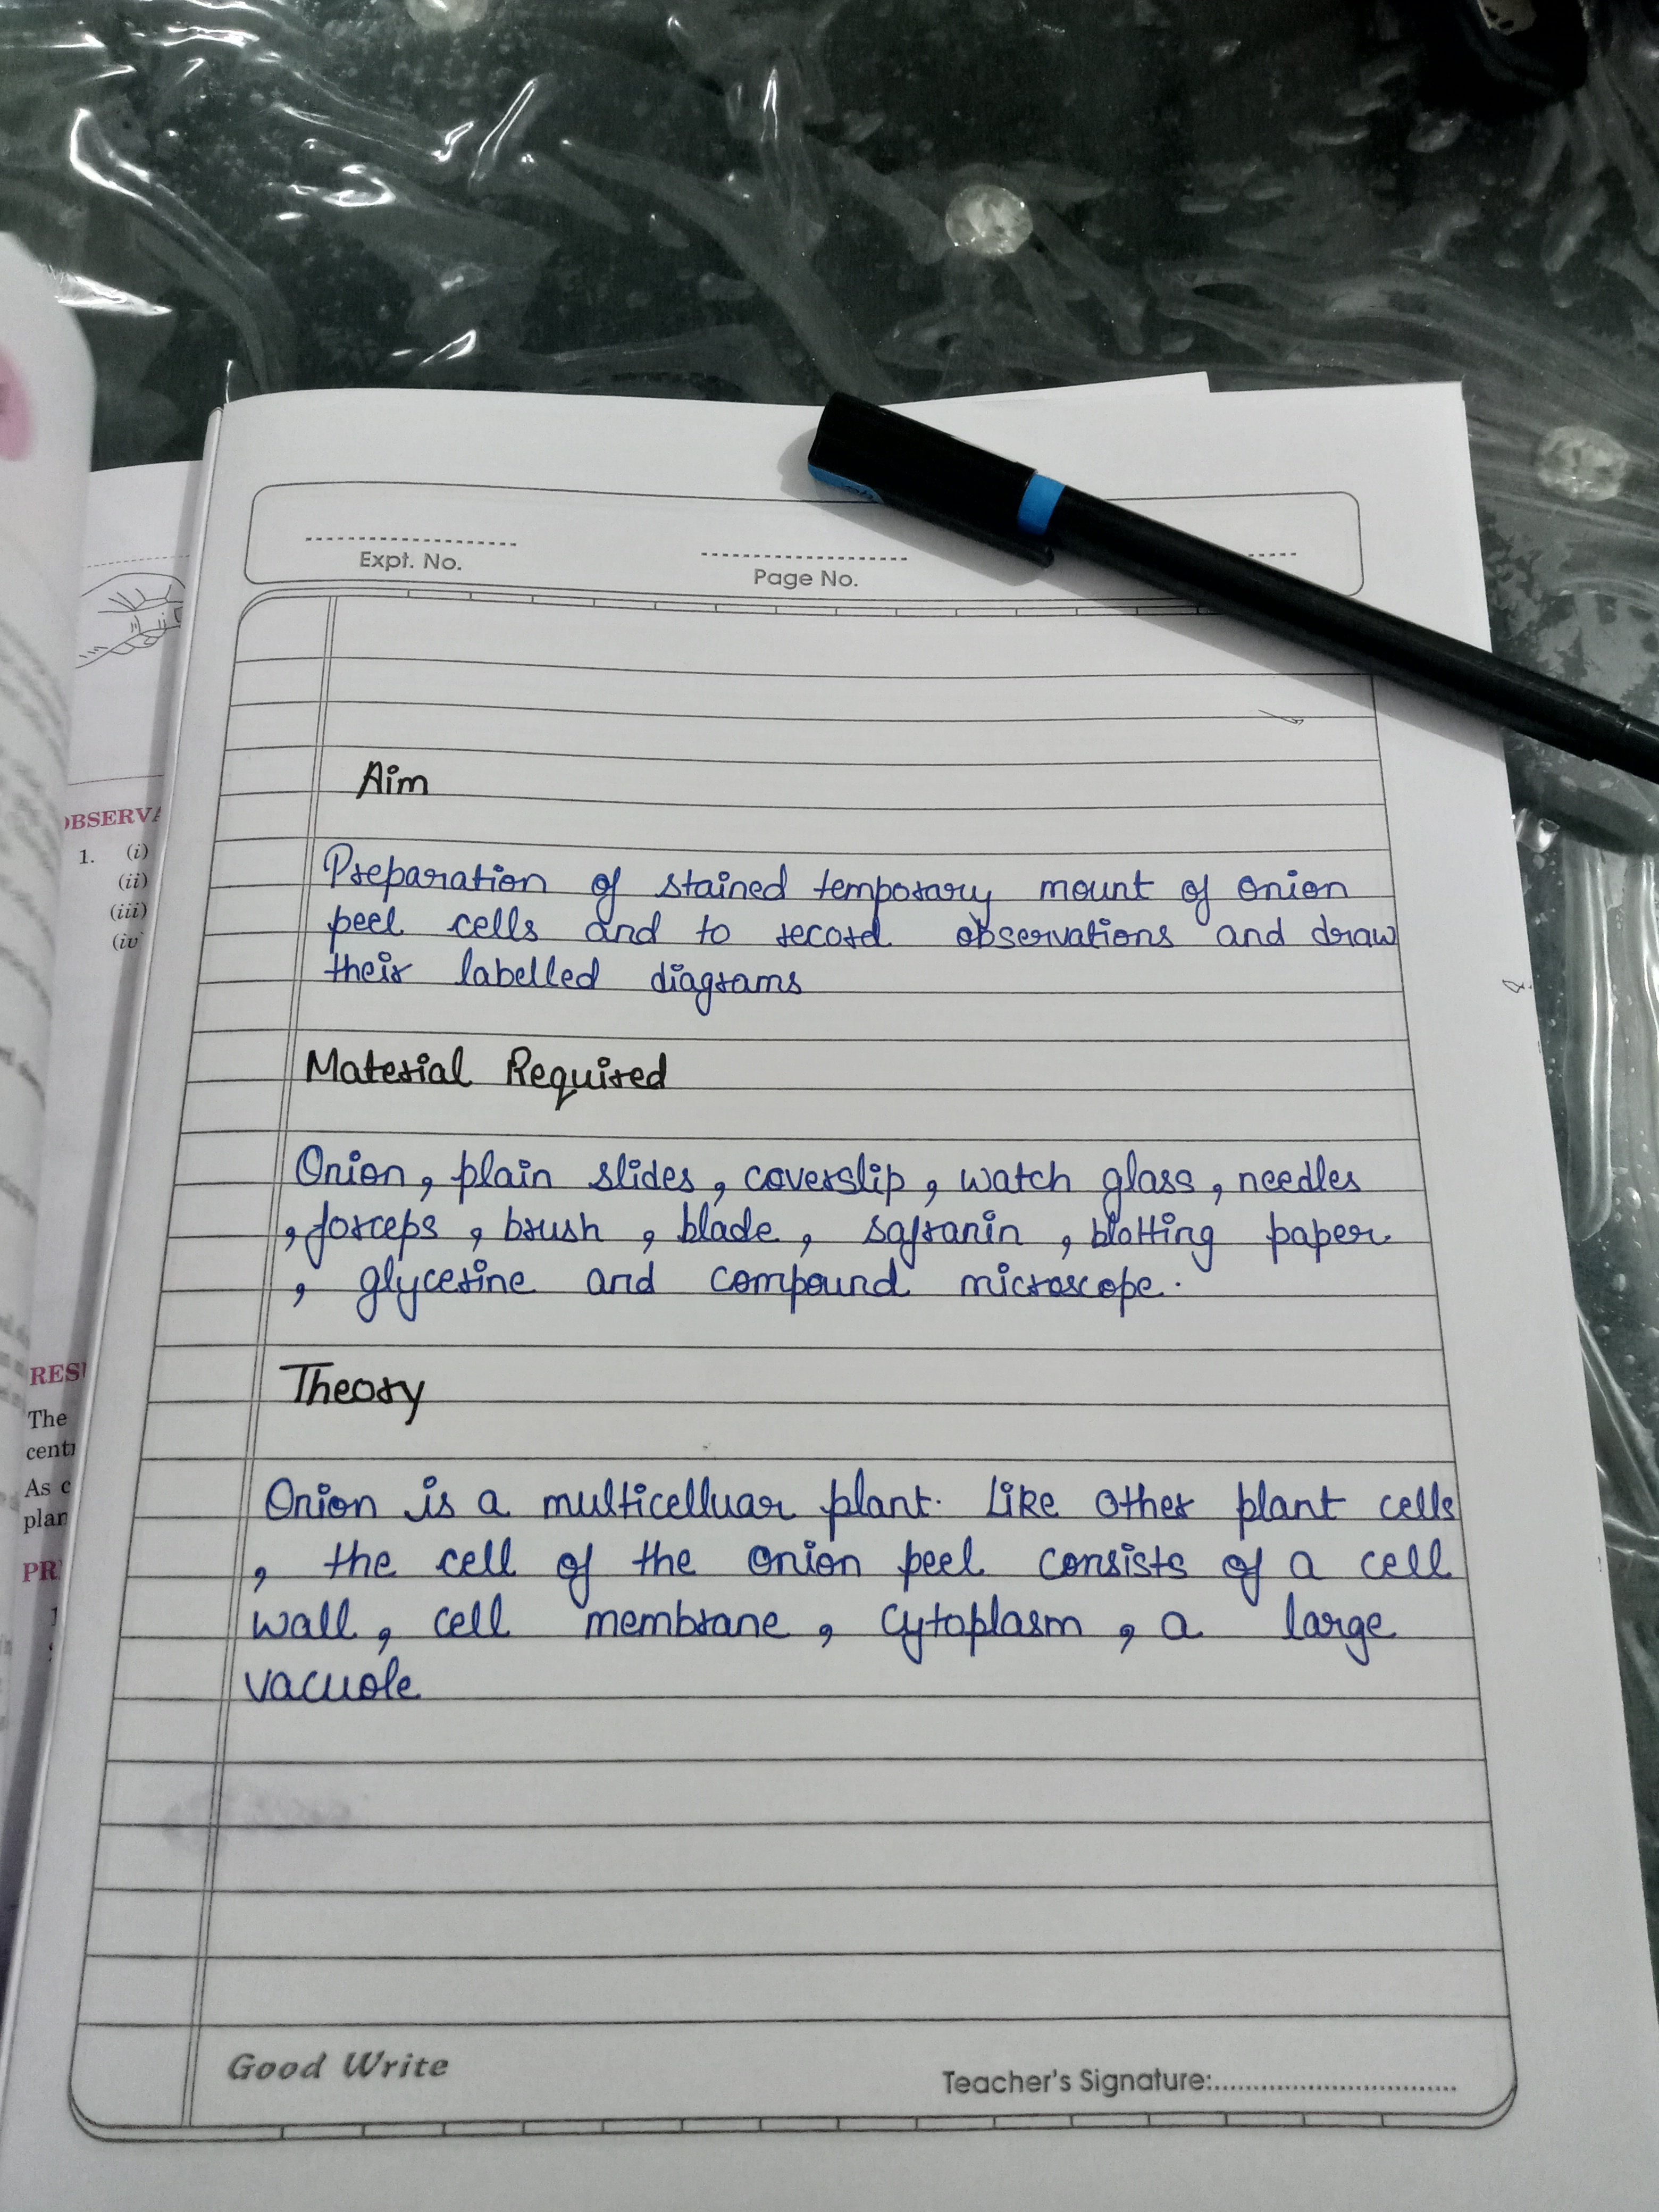 Expt. No.
Page No.
Aim
Preparation of stained temporary mount of onion
peel cells and to record observations and draw
their labelled diagrams
Material Required
Onion, plain slides, coverslip, watch glass, needles
, forceps, brush, blade, safranin, blotting paper
, glycerine and compound microscope.
Theory
Onion is a multicelluar plant. Like other plant cells
, the cell of the onion peel consists of a cell
wall, cell membrane, cytoplasm, a large
vacuole
Good Write
Teacher's Signature:
1. (i)
(ii)
(iii)
The
As